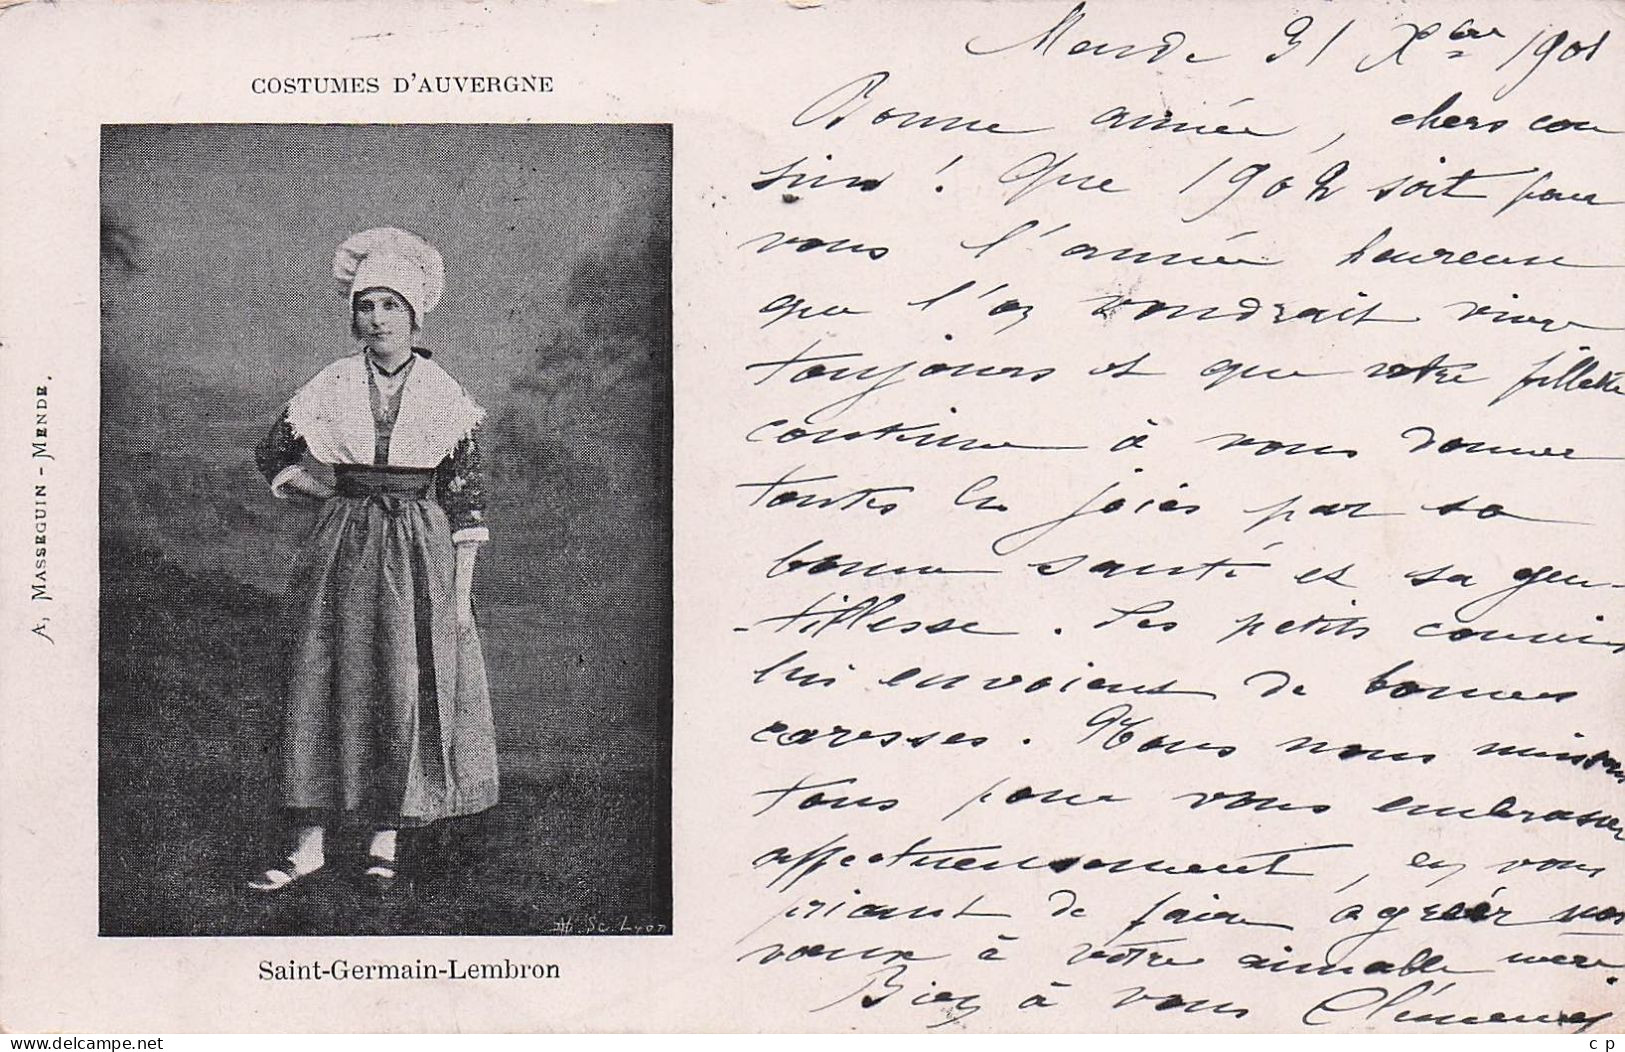 COSTUMES D'AUVERGNE
A, MASSEGUIN - MENDE.
Sc. Lyon
Saint-Germain-Lembron
Mende 31 Xbre 1901
Bonne année, chers cou
sins ! Que 1902 soit pour
vous l'année heureuse
que l'on voudrait vivre
toujours et que votre fillette
continue à vous donner
toutes les joies par sa
bonne santé et sa gen-
-tillesse. Les petits cousins
lui envoient de bonnes
caresses. Nous nous unissons
tous pour vous embrasser
affectueusement, en vous
priant de faire agréer nos
vœux à votre aimable mère.
Bien à vous Clémence
delcampe.net